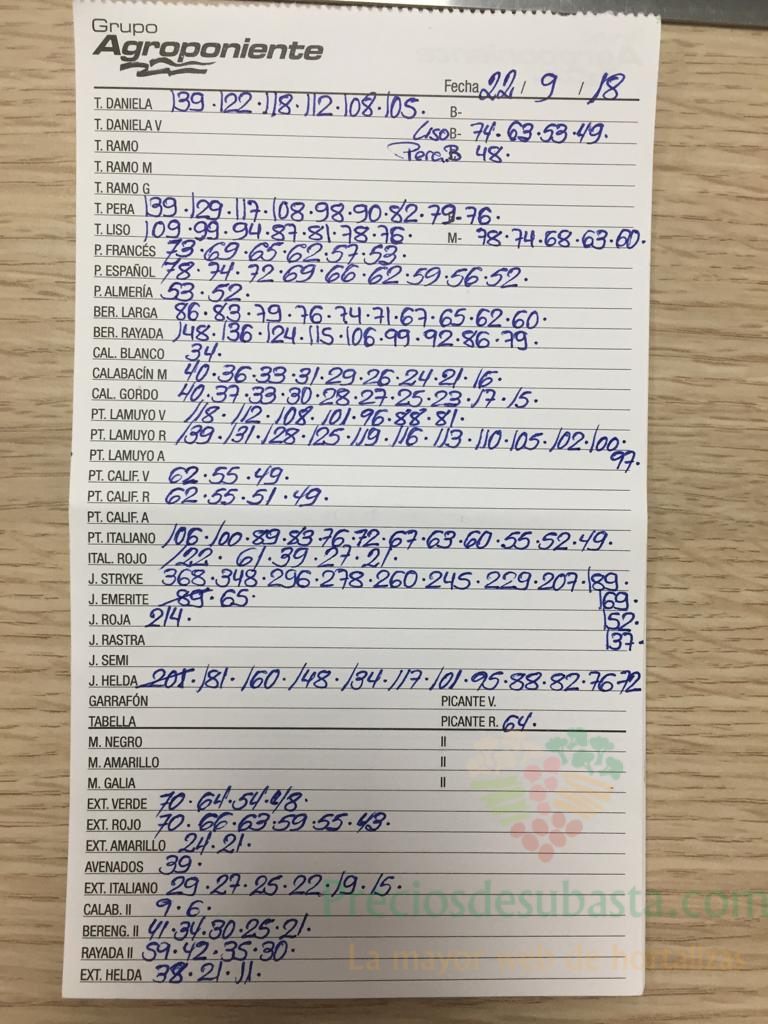 Grupo
Agroponiente
Fecha 22 / 9 / 18
T. DANELA 139 · 122 · 118 · 112 · 108 · 105 · B-
T. DANIELA V Liso B- 74 · 63 · 53 · 49 ·
T. RAMO Pera B 48 ·
T. RAMO M
T. RAMO G
T. PERA 139 · 129 · 117 · 108 · 98 · 90 · 82 · 79 · 76 ·
T. LISO 109 · 99 · 94 · 87 · 81 · 78 · 76 · M- 78 · 74 · 68 · 63 · 60 ·
P. FRANCÉS 73 · 69 · 65 · 62 · 57 · 53 ·
P. ESPAÑOL 78 · 74 · 72 · 69 · 66 · 62 · 59 · 56 · 52 ·
P. ALMERÍA 53 · 52 ·
BER. LARGA 86 · 83 · 79 · 76 · 74 · 71 · 67 · 65 · 62 · 60 ·
BER. RAYADA 148 · 136 · 124 · 115 · 106 · 99 · 92 · 86 · 79 ·
CAL. BLANCO 34 ·
CALABACÍN M 40 · 36 · 33 · 31 · 29 · 26 · 24 · 21 · 16 ·
CAL. GORDO 40 · 37 · 33 · 30 · 28 · 27 · 25 · 23 · 17 · 15 ·
PT. LAMUYO V 118 · 112 · 108 · 101 · 96 · 88 · 81 ·
PT. LAMUYO R 139 · 131 · 128 · 125 · 119 · 116 · 113 · 110 · 105 · 102 · 100 ·
PT. LAMUYO A 97 ·
PT. CALIF. V 62 · 55 · 49 ·
PT. CALIF. R 62 · 55 · 51 · 49 ·
PT. CALIF. A
PT. ITALIANO 106 · 100 · 89 · 83 76 · 72 · 67 · 63 · 60 · 55 · 52 · 49 ·
ITAL. ROJO 122 · 61 · 39 · 27 · 21 ·
J. STRYKE 368 · 348 · 296 · 278 · 260 · 245 · 229 · 207 · 189 ·
J. EMERITE 89 · 65 · 169 ·
J. ROJA 214 · 152 ·
J. RASTRA 137 ·
J. SEMI
J. HELDA 201 · 181 · 160 · 148 · 134 · 117 · 101 · 95 · 88 · 82 · 76 72
GARRAFÓN PICANTE V.
TABELLA PICANTE R. 64 ·
M. NEGRO II
M. AMARILLO II
M. GALIA II
EXT. VERDE 70 · 64 · 54 · 48 ·
EXT. ROJO 70 · 66 · 63 · 59 · 55 · 43 ·
EXT. AMARILLO 24 · 21 ·
AVENADOS 39 ·
EXT. ITALIANO 29 · 27 · 25 · 22 · 19 · 15 ·
Preciosdesubasta.com
CALAB. II 9 · 6 ·
BERENG. II 41 · 34 · 30 · 25 · 21 ·
RAYADA II 59 · 42 · 35 · 30 ·
La mayor web de hortalizas
EXT. HELDA 38 · 21 · 11 ·